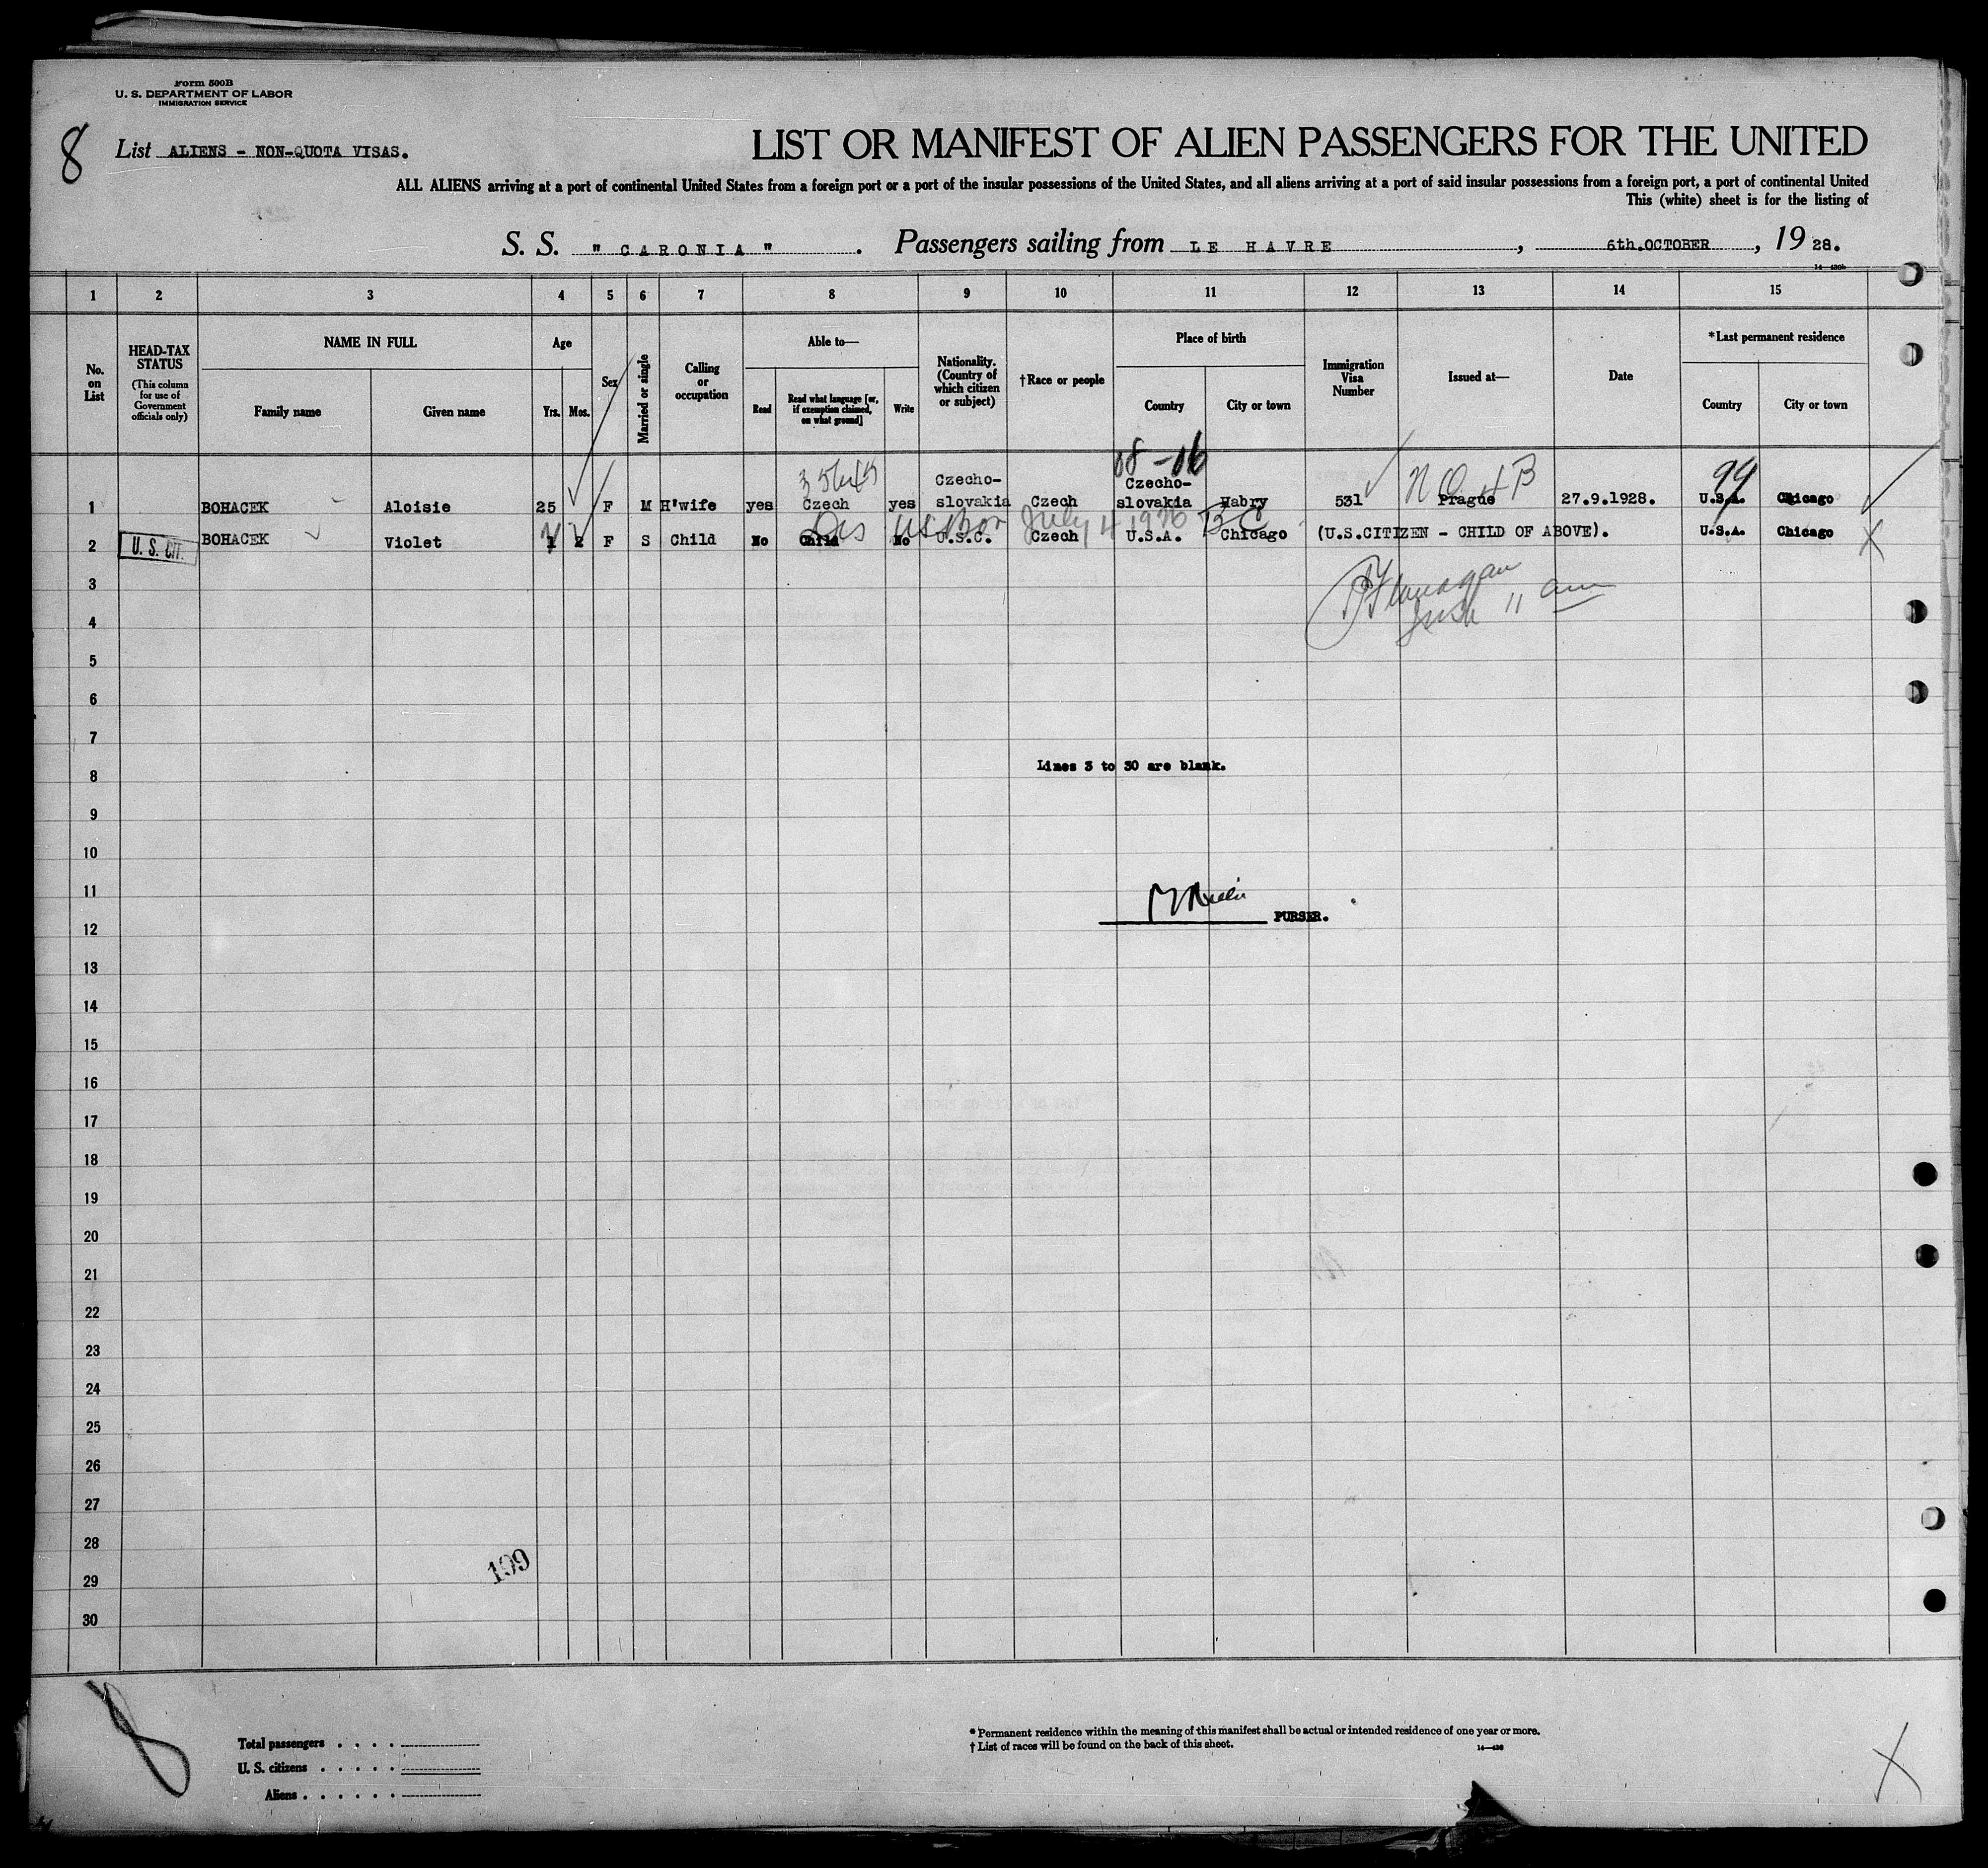 Form 500B
U. S. DEPARTMENT OF LABOR
IMMIGRATION SERVICE
8
List ALIENS - NON-QUOTA VISAS.
LIST OR MANIFEST OF ALIEN PASSENGERS FOR THE UNITED
ALL ALIENS arriving at a port of continental United States from a foreign port or a port of the insular possessions of the United States, and all aliens arriving at a port of said insular possessions from a foreign port, a port of continental United
This (white) sheet is for the listing of
S. S. " CARONIA " . Passengers sailing from LE HAVRE , 6th.OCTOBER , 19 28.
1 2 3 4 5 6 7 8 9 10 11 12 13 14 15
No. on List
HEAD-TAX STATUS
(This column for use of Government officials only)
NAME IN FULL
Family name Given name
Age
Yrs. Mos.
Sex
Married or single
Calling or occupation
Able to—
Read Read what language [or, if exemption claimed, on what ground] Write
Nationality. (Country of which citizen or subject)
†Race or people
Place of birth
Country City or town
Immigration Visa Number
Issued at—
Date
*Last permanent residence
Country City or town
08-06
99
1 BOHACEK Aloisie 25 F M H'wife yes Czech yes Czecho-slovakia Czech Czecho-slovakia Habry 531 Prague 27.9.1928. U.S.A. Chicago
July 4 1926
2 U. S. CIT. BOHACEK Violet 2 F S Child No Child No U.S.C. Czech U.S.A. Chicago (U.S.CITIZEN - CHILD OF ABOVE). U.S.A. Chicago X
3
Flanagan
4
11 am
5
6
7
Lines 3 to 30 are blank.
8
9
10
11
PURSER.
12
13
14
15
16
17
18
19
20
21
22
23
24
25
26
27
28
199
29
30
8
Total passengers . . . .
U. S. citizens . . . . .
Aliens . . . . . .
* Permanent residence within the meaning of this manifest shall be actual or intended residence of one year or more.
† List of races will be found on the back of this sheet.
X